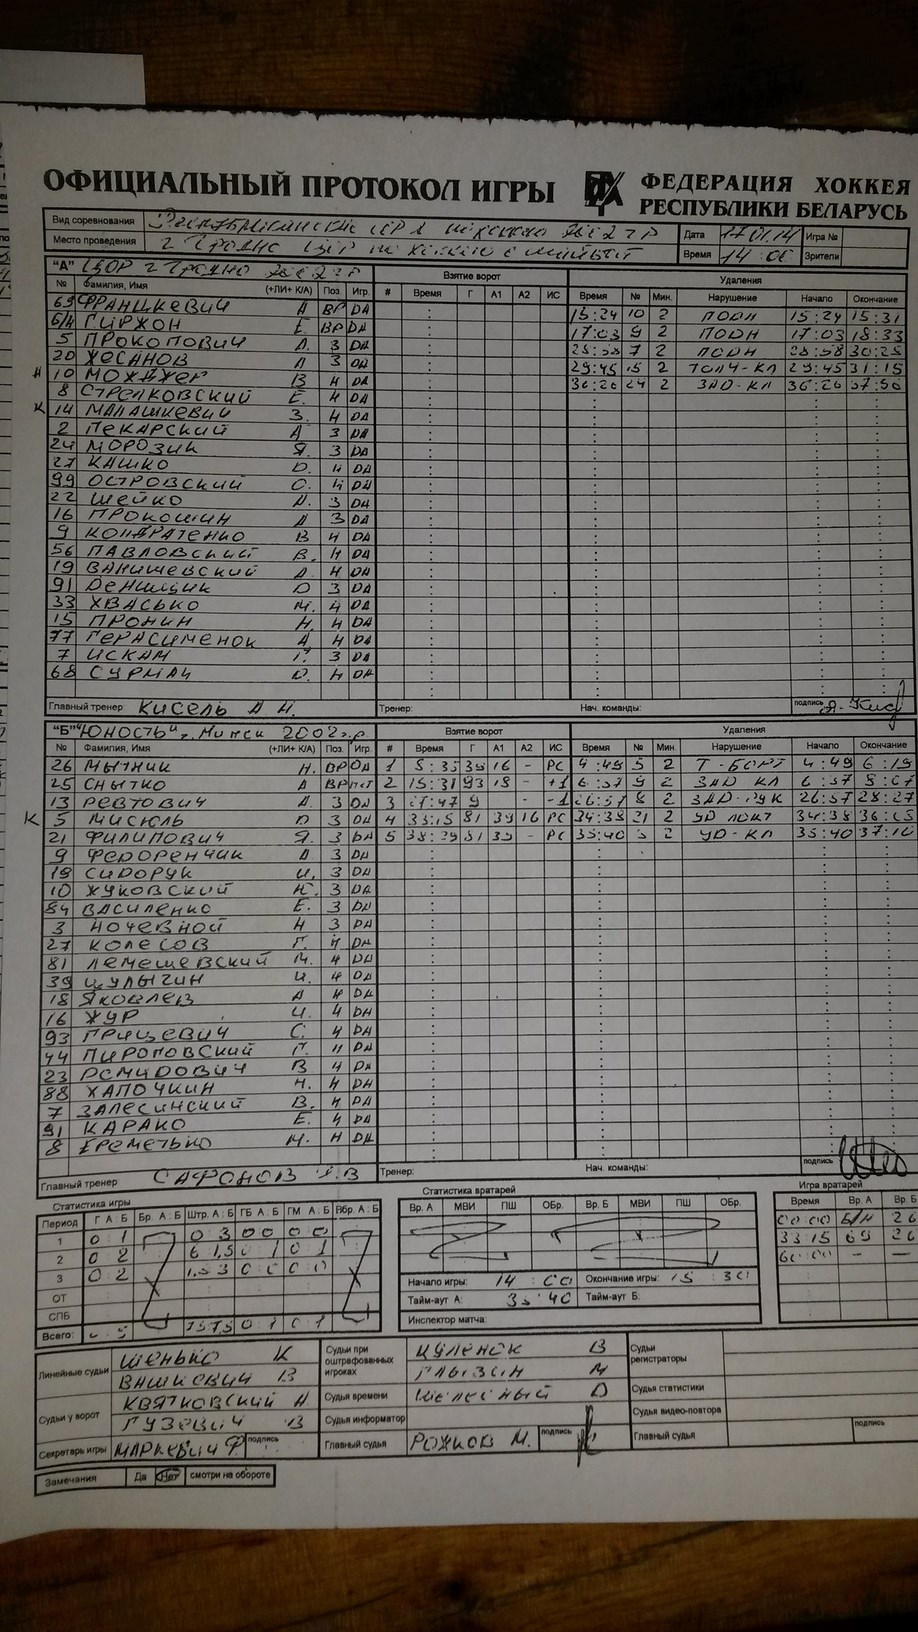 ОФИЦИАЛЬНЫЙ ПРОТОКОЛ ИГРЫ
ФЕДЕРАЦИЯ ХОККЕЯ
РЕСПУБЛИКИ БЕЛАРУСЬ
Вид соревнования Дата 17.01.14 Игра №
Место проведения г Гродно Время 14:00 Зрители
"А" г Гродно Взятие ворот Удаления
№ Фамилия, Имя (+ЛИ+ К/А) Поз. Игр. # Время Г А1 А2 ИС Время № Мин. Нарушение Начало Окончание
69 ФРАНЦКЕВИЧ А ВР ДА 15:24 10 2 ПОДН 15:24 15:31
ГИРЖОН Е. ВР ДА 17:03 9 2 ПОДН 17:03 18:33
5 ПРОКОПОВИЧ 3 ДА 7 2 ПОДН 28:58 30:25
20 ХЕСАНОВ 3 ДА 29:45 2 ТОЛЧ-КЛ 29:45 31:15
10 МОЖДЖЕР В Н ДА 36:26 24 2 ЗАД-КЛ 36:26
8 СТРЕЛКОВСКИЙ Е. Н ДА
К 14 МАЛАШКЕВИЧ З. Н ДА
2 ПЕКАРСКИЙ 3 ДА
24 МОРОЗИК Я. 3 ДА
27 КАШКО Н ДА
99 ОСТРОВСКИЙ О. Н ДА
22 ШЕЙКО 3 ДА
16 ПРОКОШИН 3 ДА
9 КОНДРАТЕНКО В Н ДА
56 ПАВЛОВСКИЙ В. Н ДА
19 ВАНИШЕВСКИЙ Н ДА
91 ДЕНИЩИК D 3 ДА
33 ХВАСЬКО М. Н ДА
15 ПРОНИН Н. Н ДА
77 ГЕРАСИМЕНОК А Н ДА
7 ИСКАМ 3 ДА
68 СУРМАЧ Н ДА
Главный тренер КИСЕЛЬ А Н. Тренер: Нач. команды: подпись
"Б" "Юность", Минск 2002 г.р. Взятие ворот Удаления
№ Фамилия, Имя (+ЛИ+ К/А) Поз. Игр. # Время Г А1 А2 ИС Время № Мин. Нарушение Начало Окончание
26 МЫТНИК Н. ВР ДА 1 5:35 39 16 - РС 4:49 5 2 Т-БОРТ 4:49 6:19
25 СНЫТКО А ВР 2 15:31 93 18 - +1 6:37 9 2 ЗАД КЛ 6:37 8:07
13 РЕВТОВИЧ 3 ДА 3 9 - -1 8 2 ЗАД-РУК 26:57 28:27
К 5 МИСЮЛЬ 3 ДА 4 33:15 81 39 16 РС 34:38 21 2 УД ЛОКТ 34:38
21 ФИЛИПОВИЧ Я. 3 ДА 5 - РС 35:40 2 УД-КЛ 35:40 37:10
9 ФЕДОРЕНЧИК 3 ДА
19 СИДОРУК И. 3 ДА
10 ЖУКОВСКИЙ 3 ДА
84 ВАСИЛЕНКО Е. 3 ДА
3 НОЧЕВНОЙ Н 3 ДА
27 КОЛЕСОВ Г. Н ДА
81 ЛЕМЕШЕВСКИЙ М. Н ДА
39 ЦУЛЫГИН И. Н ДА
18 ЯКОВЛЕВ А Н ДА
16 ЖУР И. Н ДА
93 ГРИЦЕВИЧ С. Н ДА
44 ПИРОГОВСКИЙ Г. Н ДА
23 В Н ДА
88 ХАПОЧКИН Н. Н ДА
7 ЗАЛЕСИНСКИЙ В. Н ДА
91 КАРАКО Е. Н ДА
8 М. Н ДА
Главный тренер САФОНОВ В Тренер: Нач. команды: подпись
Статистика игры Статистика вратарей Игра вратарей
Период Г А : Б Бр. А : Б Штр. А : Б ГБ А : Б ГМ А : Б Вбр. А : Б
Вр. А МВИ ПШ ОБр. Вр. Б МВИ ПШ ОБр.
Время Вр. А Вр. Б
1 0 1 0 3 0 0 0 0 00:00 Б/Н 26
2 0 2 0 1 0 1 33:15 69 26
3 0 2 0 0 0 0 60:00 — —
ОТ
СПБ
Всего: 0 1 0 1
Начало игры: 14:00 Окончание игры: 15:30
Тайм-аут А: 35:40 Тайм-аут Б:
Инспектор матча:
Линейные судьи ШЕНЬКО К
ВАШКЕВИЧ В
Судьи при оштрафованных игроках М
Судьи регистраторы
Судьи у ворот КВЯТКОВСКИЙ А
ГУЗЕВИЧ В
Судья времени ШЕЛЕСНЫЙ
Судья информатор
Судья статистики
Судья видео-повтора
Секретарь игры МАРКЕВИЧ Ф подпись
Главный судья РОЖКОВ М. подпись
Главный судья подпись
Замечания Да Нет смотри на обороте